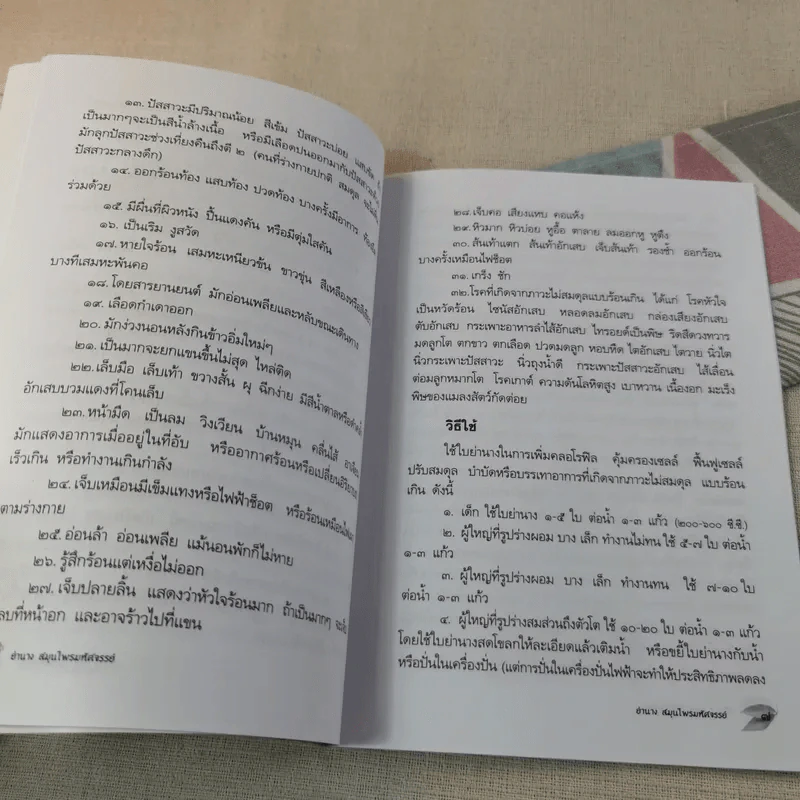 ๑๓. ปัสสาวะมีปริมาณน้อย สีเข้ม ปัสสาวะบ่อย แสบขัด ถ้า
เป็นมากๆจะเป็นสีน้ำล้างเนื้อ หรือมีเลือดปนออกมากับปัสสาวะ
มักลุกปัสสาวะช่วงเที่ยงคืนถึงตี ๒ (คนที่ร่างกายปกติ สมดุล จะไม่ลุก
ปัสสาวะกลางดึก)
๑๔. ออกร้อนท้อง แสบท้อง ปวดท้อง บางครั้งมีอาการ
ร่วมด้วย
๑๕. มีผื่นที่ผิวหนัง ปื้นแดงคัน หรือมีตุ่มใสคัน
๑๖. เป็นเริม งูสวัด
๑๗. หายใจร้อน เสมหะเหนียวข้น ขาวขุ่น สีเหลืองหรือสีเขียว
บางทีเสมหะพันคอ
๑๘. โดยสารยานยนต์ มักอ่อนเพลียและหลับขณะเดินทาง
๑๙. เลือดกำเดาออก
๒๐. มักง่วงนอนหลังกินข้าวอิ่มใหม่ๆ
๒๑. เป็นมากจะยกแขนขึ้นไม่สุด ไหล่ติด
๒๒. เล็บมือ เล็บเท้า ขวางสั้น ผุ ฉีกง่าย มีสีน้ำตาลหรือดำคล้ำ
อักเสบบวมแดงที่โคนเล็บ
๒๓. หน้ามืด เป็นลม วิงเวียน บ้านหมุน คลื่นไส้ อาเจียน
มักแสดงอาการเมื่ออยู่ในที่อับ หรืออากาศร้อนหรือเปลี่ยนอิริยาบถ
เร็วเกิน หรือทำงานเกินกำลัง
๒๔. เจ็บเหมือนมีเข็มแทงหรือไฟฟ้าช็อต หรือร้อนเหมือนไฟเผา
ตามร่างกาย
๒๕. อ่อนล้า อ่อนเพลีย แม้นอนพักก็ไม่หาย
๒๖. รู้สึกร้อนแต่เหงื่อไม่ออก
๒๗. เจ็บปลายลิ้น แสดงว่าหัวใจร้อนมาก ถ้าเป็นมากๆ จะเจ็บ
ที่หน้าอก และอาจร้าวไปที่แขน
ย่านาง สมุนไพรมหัศจรรย์
๒๘. เจ็บคอ เสียงแหบ คอแห้ง
๒๙. หิวมาก หิวบ่อย หูอื้อ ตาลาย ลมออกหู หูตึง
๓๐. ส้นเท้าแตก ส้นเท้าอักเสบ เจ็บส้นเท้า รองช้ำ ออกร้อน
บางครั้งเหมือนไฟช็อต
๓๑. เกร็ง ชัก
๓๒. โรคที่เกิดจากภาวะไม่สมดุลแบบร้อนเกิน ได้แก่ โรคหัวใจ
เป็นหวัดร้อน ไซนัสอักเสบ หลอดลมอักเสบ กล่องเสียงอักเสบ
ตับอักเสบ กระเพาะอาหารลำไส้อักเสบ ไทรอยด์เป็นพิษ ริดสีดวงทวาร
มดลูกโต ตกขาว ตกเลือด ปวดมดลูก หอบหืด ไตอักเสบ ไตวาย นิ่วไต
นิ่วกระเพาะปัสสาวะ นิ่วถุงน้ำดี กระเพาะปัสสาวะอักเสบ ไส้เลื่อน
ต่อมลูกหมากโต โรคเกาต์ ความดันโลหิตสูง เบาหวาน เนื้องอก มะเร็ง
พิษของแมลงสัตว์กัดต่อย
วิธีใช้
ใช้ใบย่านางในการเพิ่มคลอโรฟิล คุ้มครองเซลล์ ฟื้นฟูเซลล์
ปรับสมดุล บำบัดหรือบรรเทาอาการที่เกิดจากภาวะไม่สมดุล แบบร้อน
เกิน ดังนี้
๑. เด็ก ใช้ใบย่านาง ๑-๕ ใบ ต่อน้ำ ๑-๓ แก้ว (๒๐๐-๖๐๐ ซี.ซี.)
๒. ผู้ใหญ่ที่รูปร่างผอม บาง เล็ก ทำงานไม่ทน ใช้ ๕-๗ ใบ ต่อน้ำ
๑-๓ แก้ว
๓. ผู้ใหญ่ที่รูปร่างผอม บาง เล็ก ทำงานทน ใช้ ๗-๑๐ ใบ
ต่อน้ำ ๑-๓ แก้ว
๔. ผู้ใหญ่ที่รูปร่างสมส่วนถึงตัวโต ใช้ ๑๐-๒๐ ใบ ต่อน้ำ ๑-๓ แก้ว
โดยใช้ใบย่านางสดโขลกให้ละเอียดแล้วเติมน้ำ หรือขยี้ใบย่านางกับน้ำ
หรือปั่นในเครื่องปั่น (แต่การปั่นในเครื่องปั่นไฟฟ้าจะทำให้ประสิทธิภาพลดลง
ย่านาง สมุนไพรมหัศจรรย์ ๗